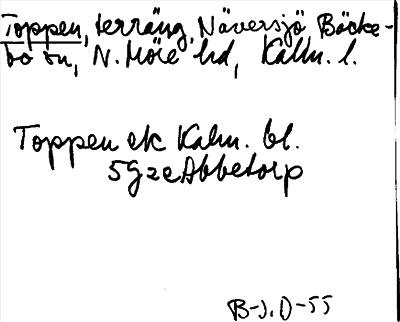 Toppen, terräng, Näversjö Böcke-
bo sn, N. Möre hd, Kalm. l.
Toppen ek Kalm. bl.
5g2e Abbetorp
B-J.O-55